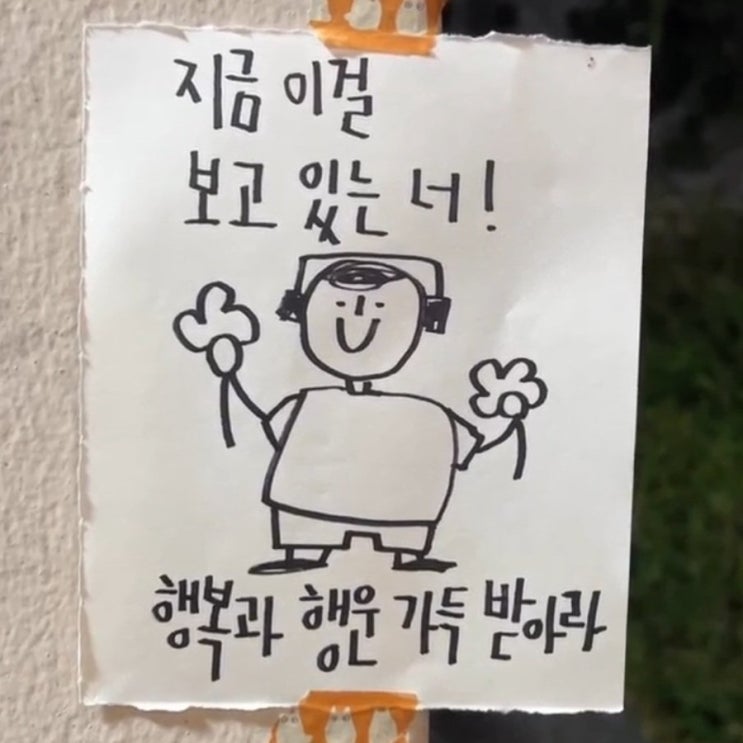 지금 이걸
보고 있는 너!
행복과 행운 가득 받아라